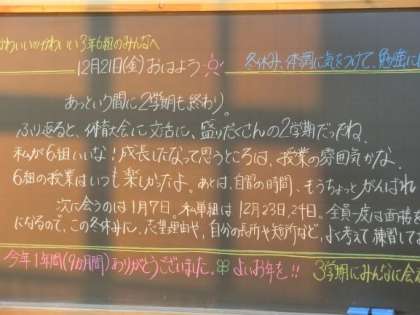 かわいいかわいい3年6組のみんなへ
12月21日(金)おはよう
冬休み、体調に気をつけて、勉強に
あっという間に2学期も終わり。
ふり返ると、体育大会に文活に、盛りだくさんの2学期だったね
私が6組いいな!成長したなって思うところは、授業の雰囲気かな。
6組の授業はいつも楽しかったよ。あとは、自習の時間、もうちょっとがんばれ
次に会うのは1月7日。私単組は12月23日,24日。全員一度は面接を
になるので、この冬休みに、志望理由や、自分の長所や短所など、よく考えて練習して
今年1年間(9カ月間)ありがとうございました。よいお年を!!
3学期にみんなに会